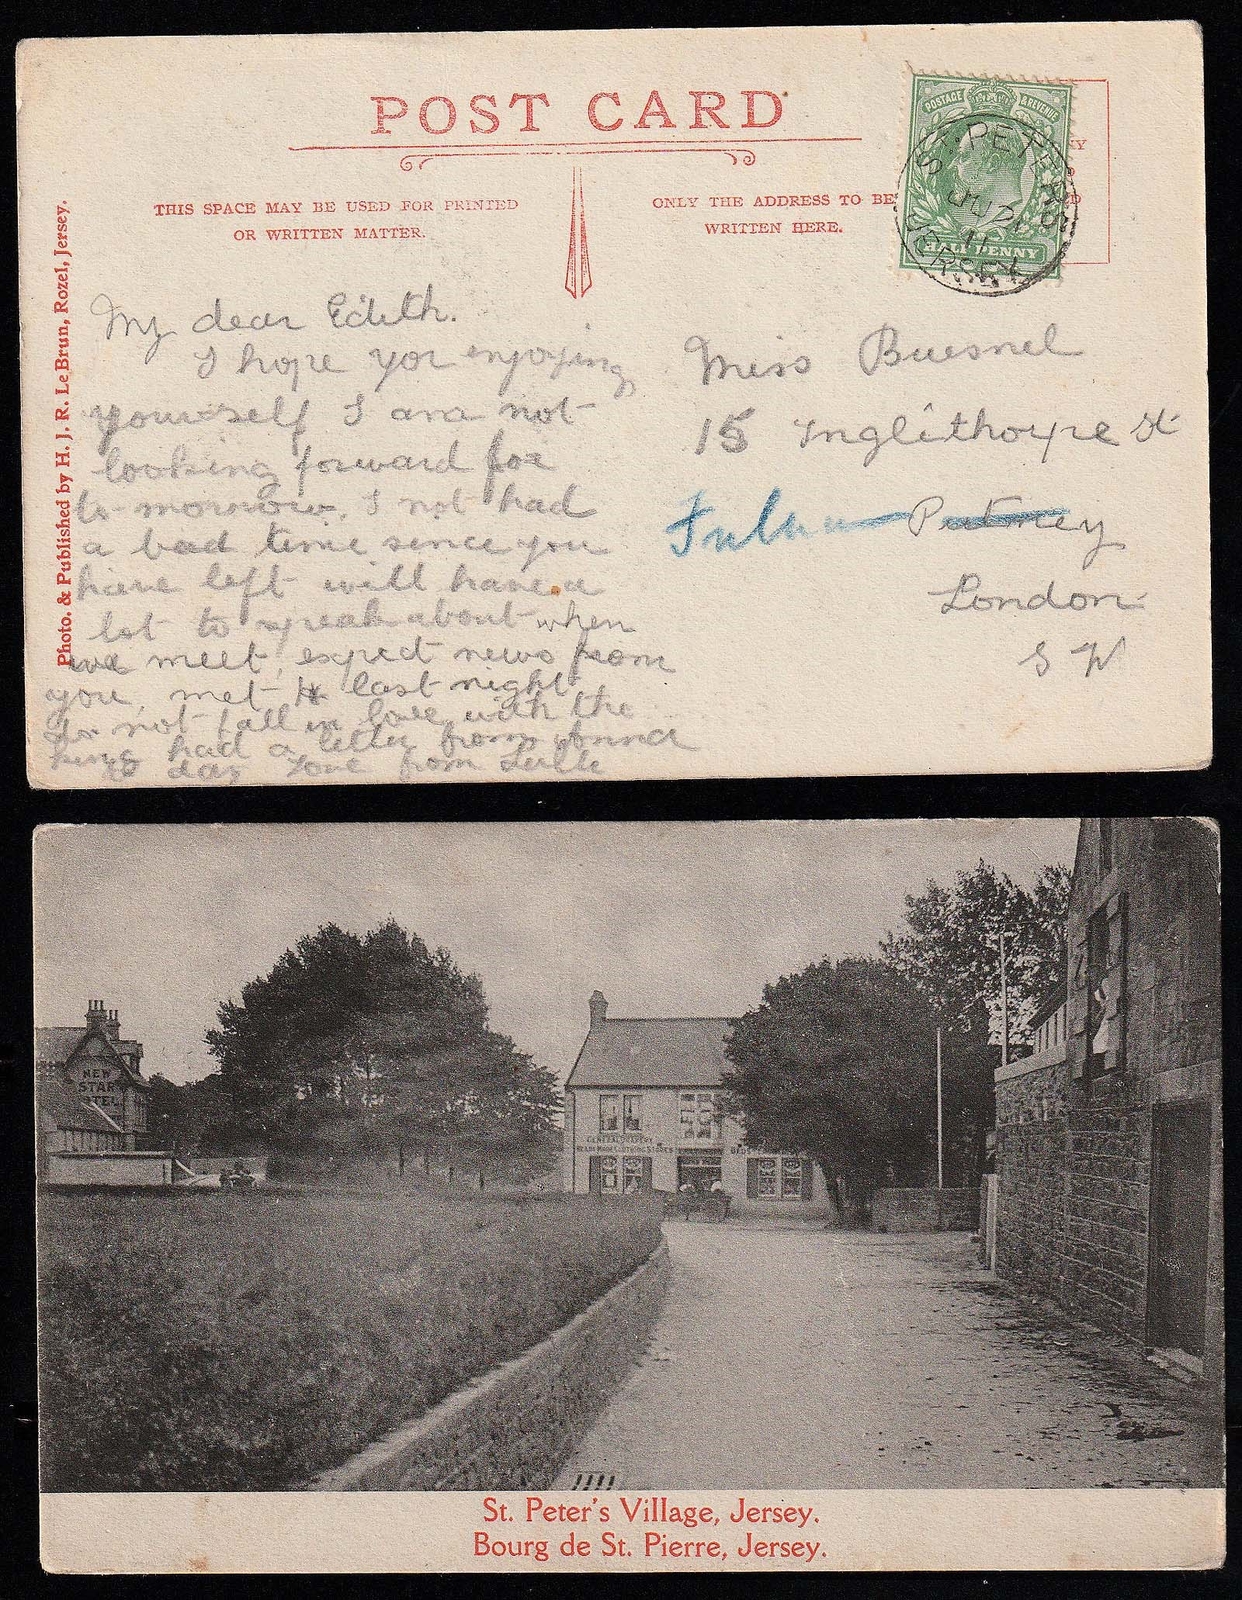 POST CARD
THIS SPACE MAY BE USED FOR PRINTED
OR WRITTEN MATTER.
ONLY THE ADDRESS TO BE
WRITTEN HERE.
POSTAGE & REVENUE
HALF PENNY
ST PETERS
JU 2
11
JERSEY
NY
D
Photo. & Published by H. J. R. Le Brun, Rozel, Jersey.
My dear Edith.
I hope you enjoying
yourself I am not
looking forward for
to-morrow, I not had
a bad time since you
have left will have a
lot to speak about when
we meet, expect news from
you, met H last night
do not fall in love with the
king had a letter from Anna
to day love from
Miss Buesnel
15 Inglethorpe St
Fulham Putney
London
S W
NEW
STAR
TEL
GENERAL DRAPERY
READY MADE CLOTHING STORES
St. Peter's Village, Jersey.
Bourg de St. Pierre, Jersey.